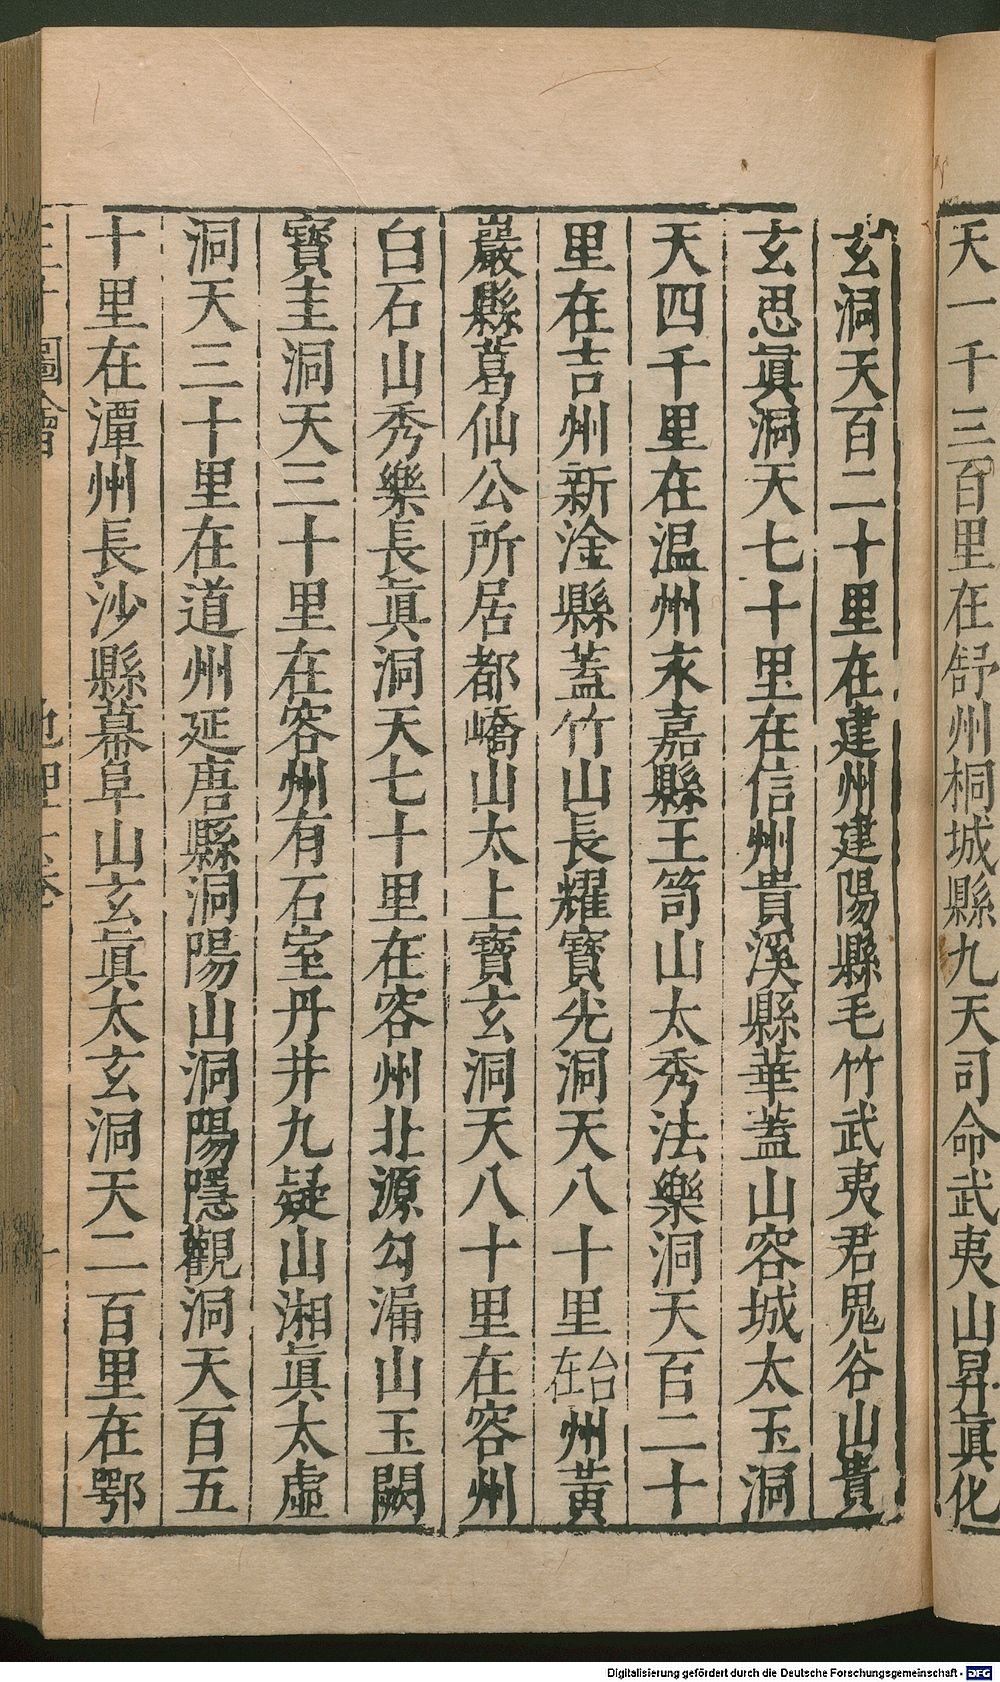 天一千三百里在舒州桐城縣九天司命武夷山昇眞化
玄洞天百二十里在建州建陽縣毛竹武夷君鬼谷山貴
玄思眞洞天七十里在信州貴溪縣華蓋山容城太玉洞
天四千里在温州永嘉縣王笥山太秀法樂洞天百二十
里在吉州新淦縣蓋竹山長耀寶光洞天八十里在台州黃
巖縣葛仙公所居都嶠山太上寶玄洞天八十里在容州
白石山秀樂長眞洞天七十里在容州北源勾漏山玉闕
寶圭洞天三十里在容州有石室丹井九疑山湘眞太虛
洞天三十里在道州延唐縣洞陽山洞陽隱觀洞天百五
十里在潭州長沙縣幕阜山玄眞太玄洞天二百里在鄂
圖會
Digitalisierung gefördert durch die Deutsche Forschungsgemeinschaft - DFG